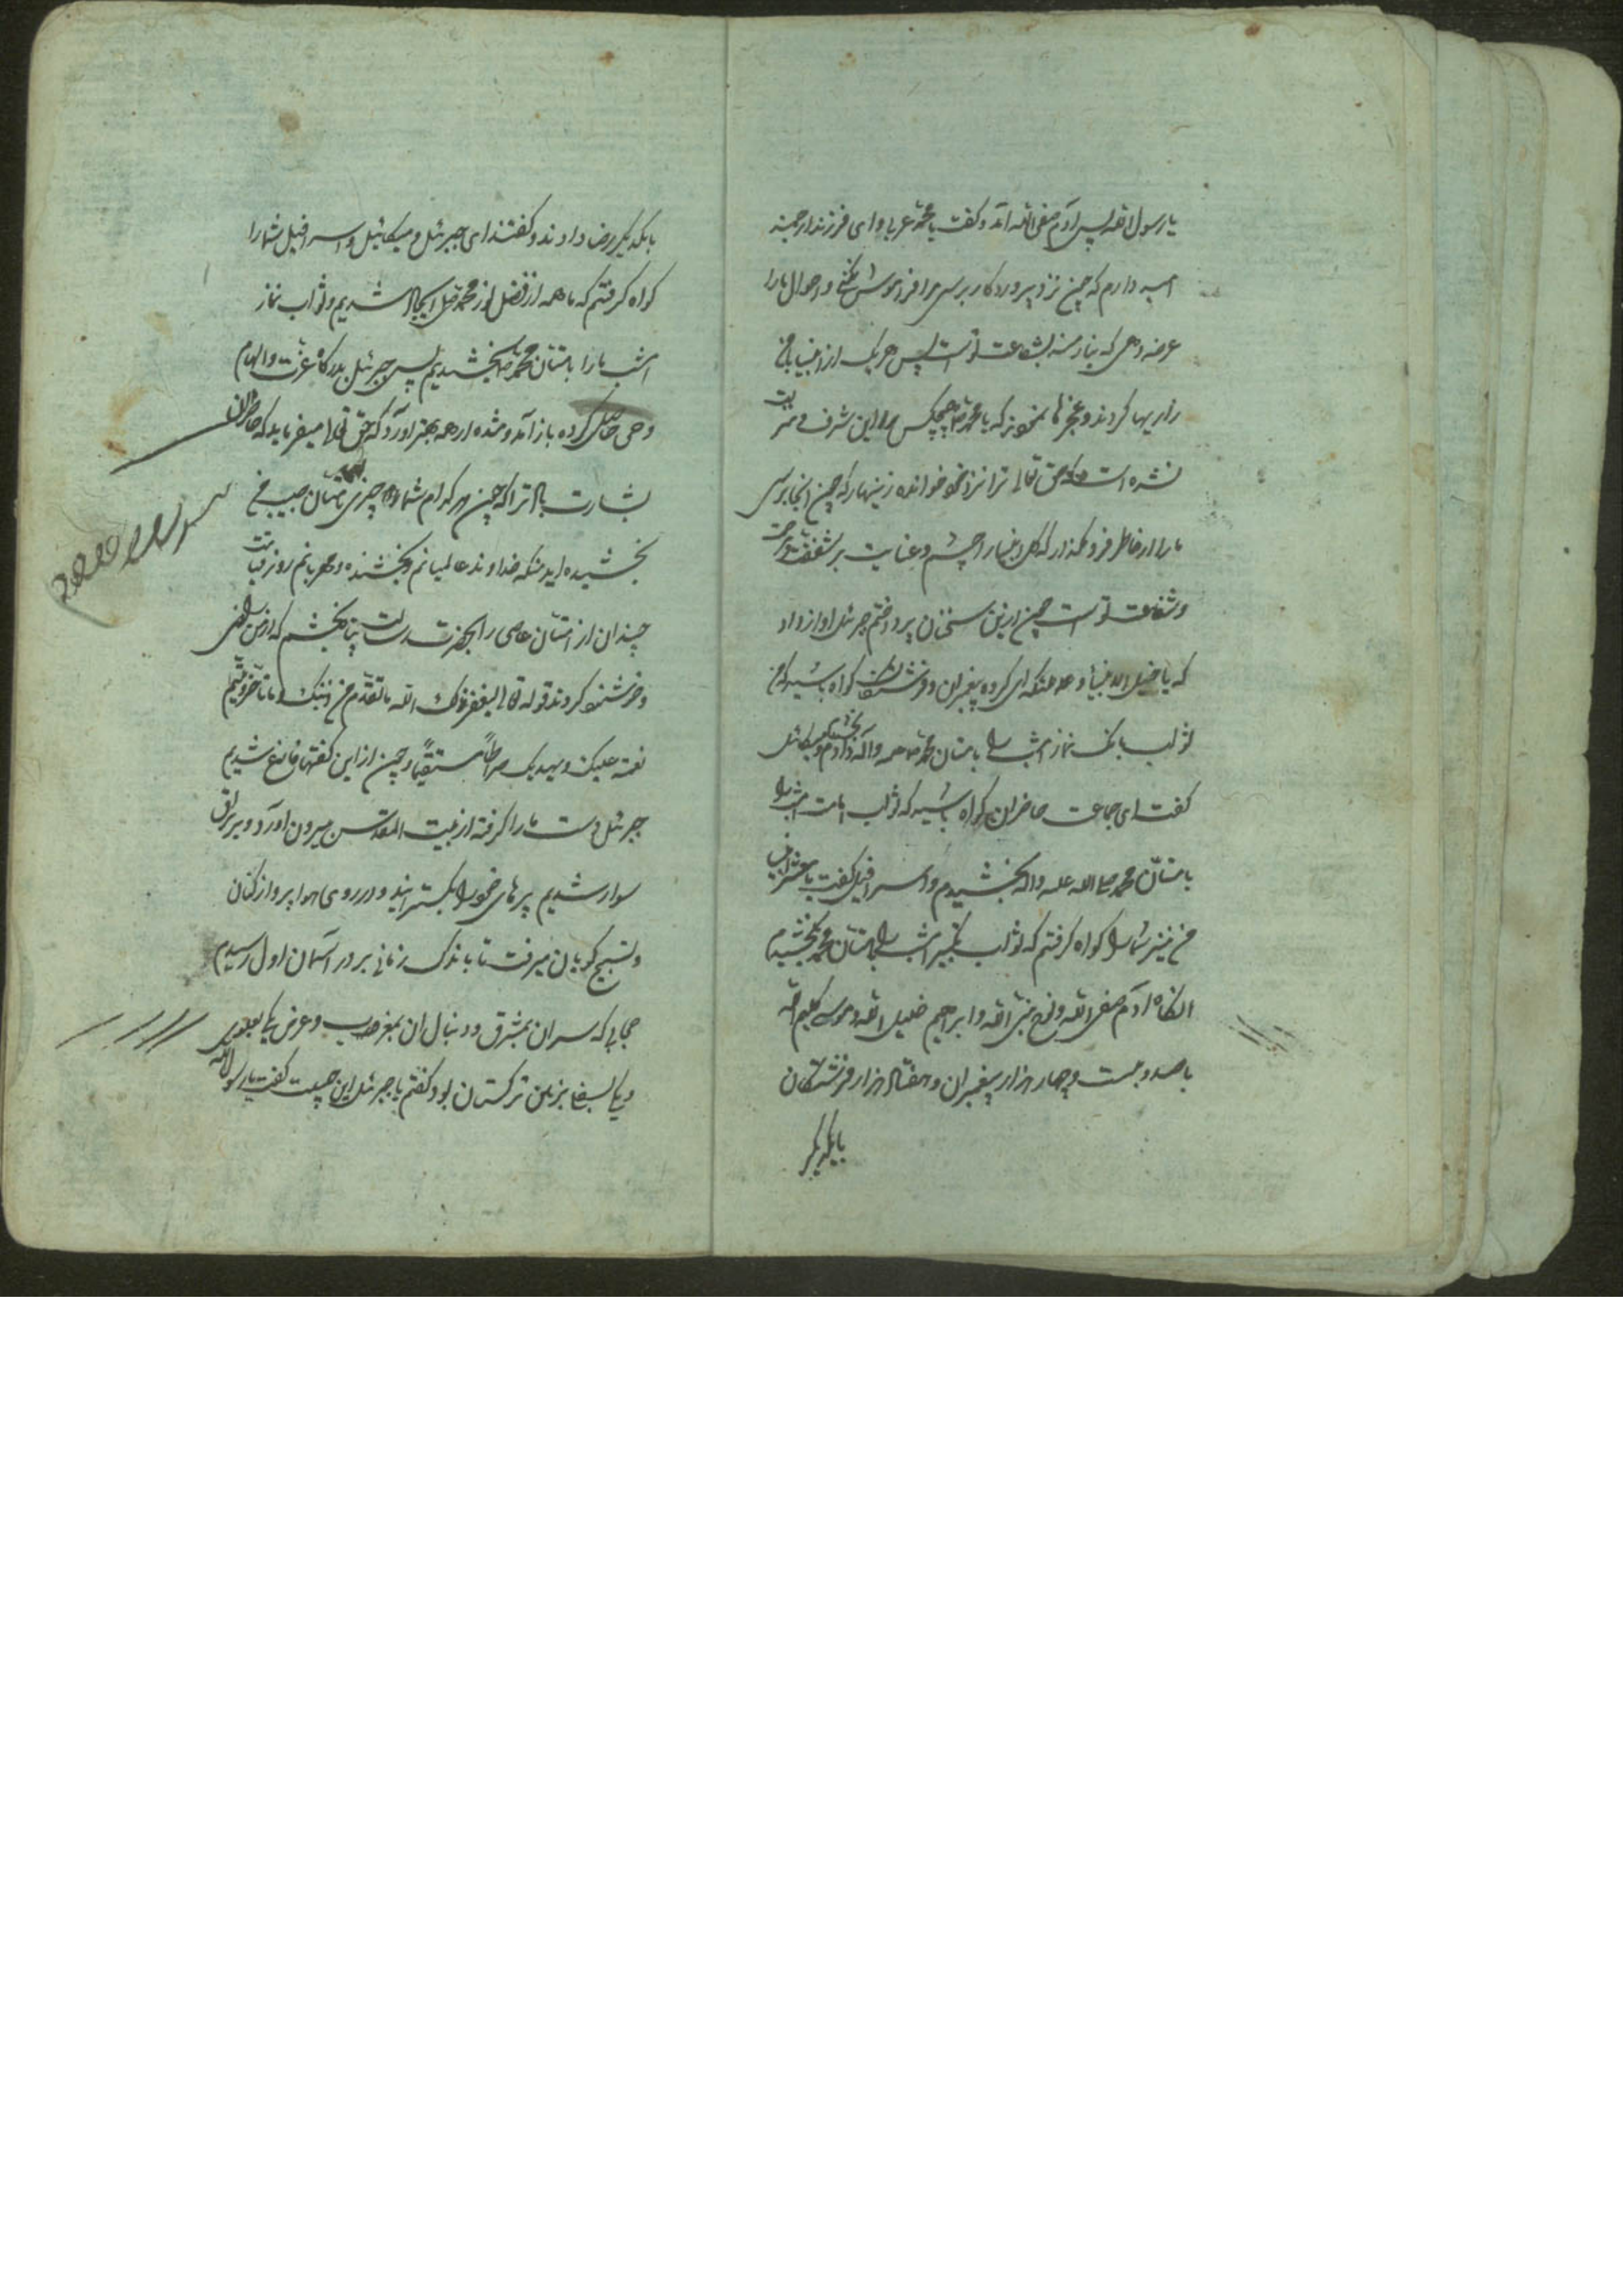 یا رسول الله پس آدم صفی الله آمد و گفت یا محمد عربی و ای فرزند ارجمند
امید دارم که چون نزد پروردگار برسی مرا فراموش نکنی و احوال ما را
عرضه دهی که نیازمند شفاعت تو است پس هر یک از انبیا
زاریها کردند و عجزها نمودند که یا محمد هیچکس را این شرف و مرتبت
نشده است که حق تعالی ترا نزد خود خوانده زینهار که چون آنجا برسی
ما را از خاطر فرو مگذار که کل انبیا را چشم و عنایت بر شفقت و مرحمت
و شفاعت تو است چون از این سخنان پرداختم جبرئیل آواز داد
که یا خیل الانبیا و ملائکه ای گروه پیغمبران و فرشتگان گواه باشید که من
ثواب بانگ نماز امشب را بامتان محمد صلعم و آله بخشیدم و میکائیل
گفت ای جماعت حاضران گواه باشید که ثواب امامت امشب را
بامتان محمد صلی الله علیه و آله بخشیدم و اسرافیل گفت یا معشر انبیا
من نیز شما را گواه گرفتم که ثواب تکبیر امشب را بامتان محمد بخشیدم
آنگاه آدم صفی الله و نوح نبی الله و ابراهیم خلیل الله و موسی کلیم الله
با صد و بیست و چهار هزار پیغمبران و هفتاد هزار فرشتگان
بایکدیگر
بایکدیگر رضا دادند و گفتند ای جبرئیل و میکائیل و اسرافیل شما را
گواه گرفتم که ما همه از فضل نور محمد شدیم و ثواب نماز
امشب ما را بامتان محمد بخشیدیم پس جبرئیل بدرگاه عزت و الهام
وحی حاصل کرده باز آمد و مژده از همه بهتر آورد که حق تعالی میفرماید که حاضران
بشارت باد ترا که چون هر کدام شما چیزی بامتان حبیب من
بخشیده اید منکه خداوند عالمیانم و بخشنده و مهربانم روز قیامت
چندان از امتان عاصی را بحضرت رسالت پناه بخشم که از من راضی
و خوشنود گردند قوله تعالی لیغفر لک الله ما تقدم من ذنبک و ما تاخر و یتم
نعمته علیک و یهدیک صراطا مستقیما و چون از این گفتها فارغ شدیم
جبرئیل دست ما را گرفته از بیت المقدس بیرون آورد و بر براق
سوار شدیم پرهای خود را بگسترانید و در روی هوا پرواز کنان
و تسبیح گویان میرفت تا باندک زمانی بر در آسمان اول رسیدم
حجابی که سر آن بمشرق و دنبال آن بمغرب و عرض
بود گفتم یا جبرئیل این چیست گفت یا رسول الله